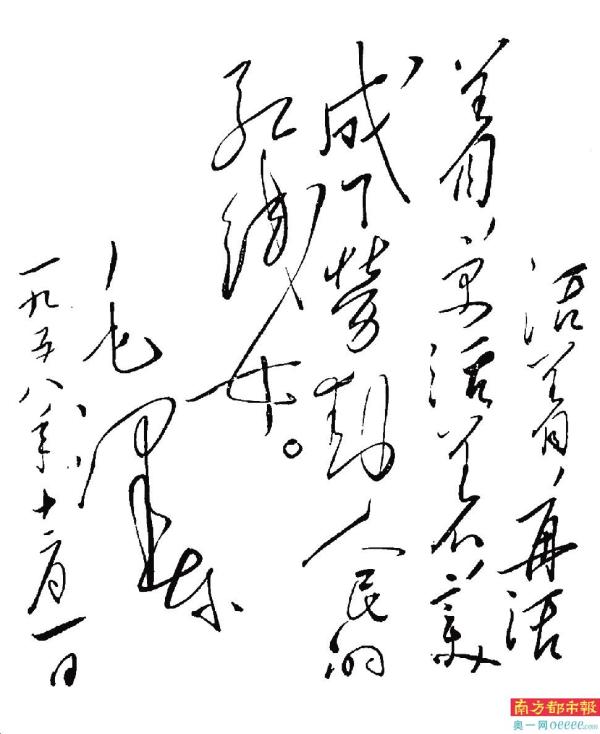 活着，再活
着，更活着，变
成了劳动人民的
红线女。
毛泽东
一九五八年十二月一日
南方都市報
奥一网oeeee.com